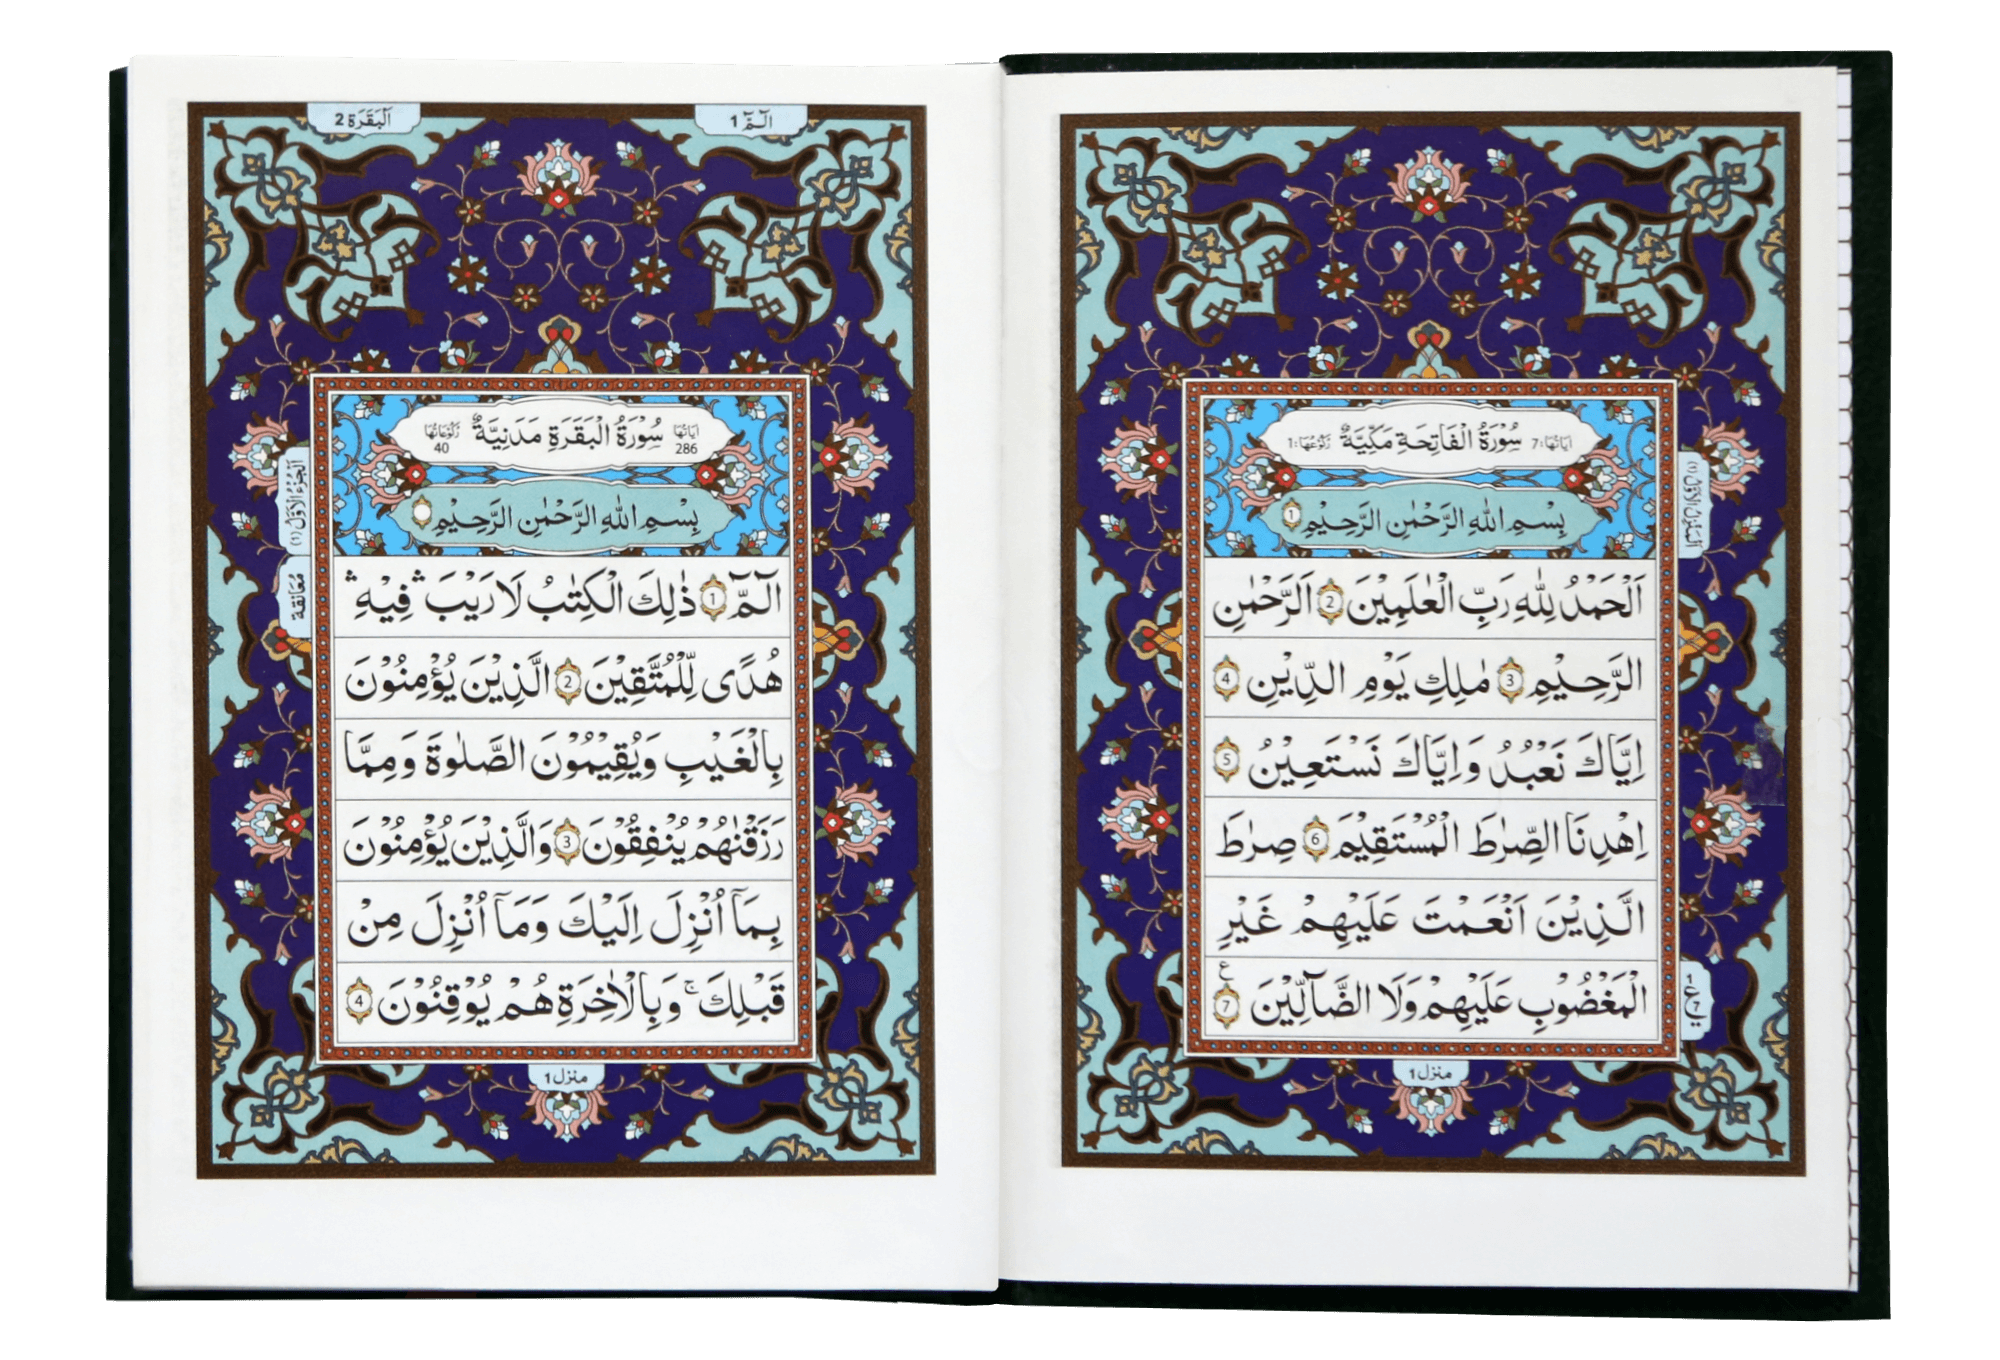 سُوْرَةُ الْفَاتِحَةِ مَكِّيَّةٌ
اٰيَاتُهَا: 7
رُكُوْعُهَا: 1
بِسْمِ اللّٰهِ الرَّحْمٰنِ الرَّحِيْمِ 1
اَلْحَمْدُ لِلّٰهِ رَبِّ الْعٰلَمِيْنَ 2 الرَّحْمٰنِ
الرَّحِيْمِ 3 مٰلِكِ يَوْمِ الدِّيْنِ 4
اِيَّاكَ نَعْبُدُ وَاِيَّاكَ نَسْتَعِيْنُ 5
اِهْدِنَا الصِّرَاطَ الْمُسْتَقِيْمَ 6 صِرَاطَ
الَّذِيْنَ اَنْعَمْتَ عَلَيْهِمْ غَيْرِ
الْمَغْضُوْبِ عَلَيْهِمْ وَلَا الضَّآلِّيْنَ 7 ع
منزل 1
1 ع 7
اَلْجُزْءُ الْاَوَّلُ (1)
الٓمّٓ 1
اَلْبَقَرَة 2
سُوْرَةُ الْبَقَرَةِ مَدَنِيَّةٌ
اٰيَاتُهَا 286
رُكُوْعَاتُهَا 40
بِسْمِ اللّٰهِ الرَّحْمٰنِ الرَّحِيْمِ
الٓمّٓ 1 ذٰلِكَ الْكِتٰبُ لَا رَيْبَ ۛ فِيْهِ ۛ
هُدًى لِّلْمُتَّقِيْنَ 2 الَّذِيْنَ يُؤْمِنُوْنَ
بِالْغَيْبِ وَيُقِيْمُوْنَ الصَّلٰوةَ وَمِمَّا
رَزَقْنٰهُمْ يُنْفِقُوْنَ 3 وَالَّذِيْنَ يُؤْمِنُوْنَ
بِمَآ اُنْزِلَ اِلَيْكَ وَمَآ اُنْزِلَ مِنْ
قَبْلِكَ ۚ وَبِالْاٰخِرَةِ هُمْ يُوْقِنُوْنَ 4
منزل 1
اَلْجُزْءُ الْاَوَّلُ (1)
مُعَانَقَة